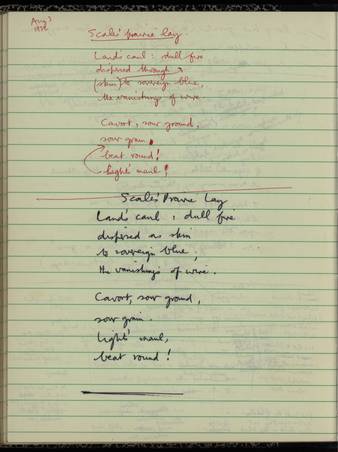 Aug 3
Scales' Prairie Lay
Land's caul : dull fire
dispersed through
(skin) to sovereign blue,
the vanishings of wire
Cavort, sow ground,
sow grain.
beat round!
Light's maul!
Scales' Prairie Lay
Land's caul : dull fire
dispersed as skin
to sovereign blue,
the vanishings of wire.
Cavort, sow ground,
sow grain.
Light's maul,
beat round!